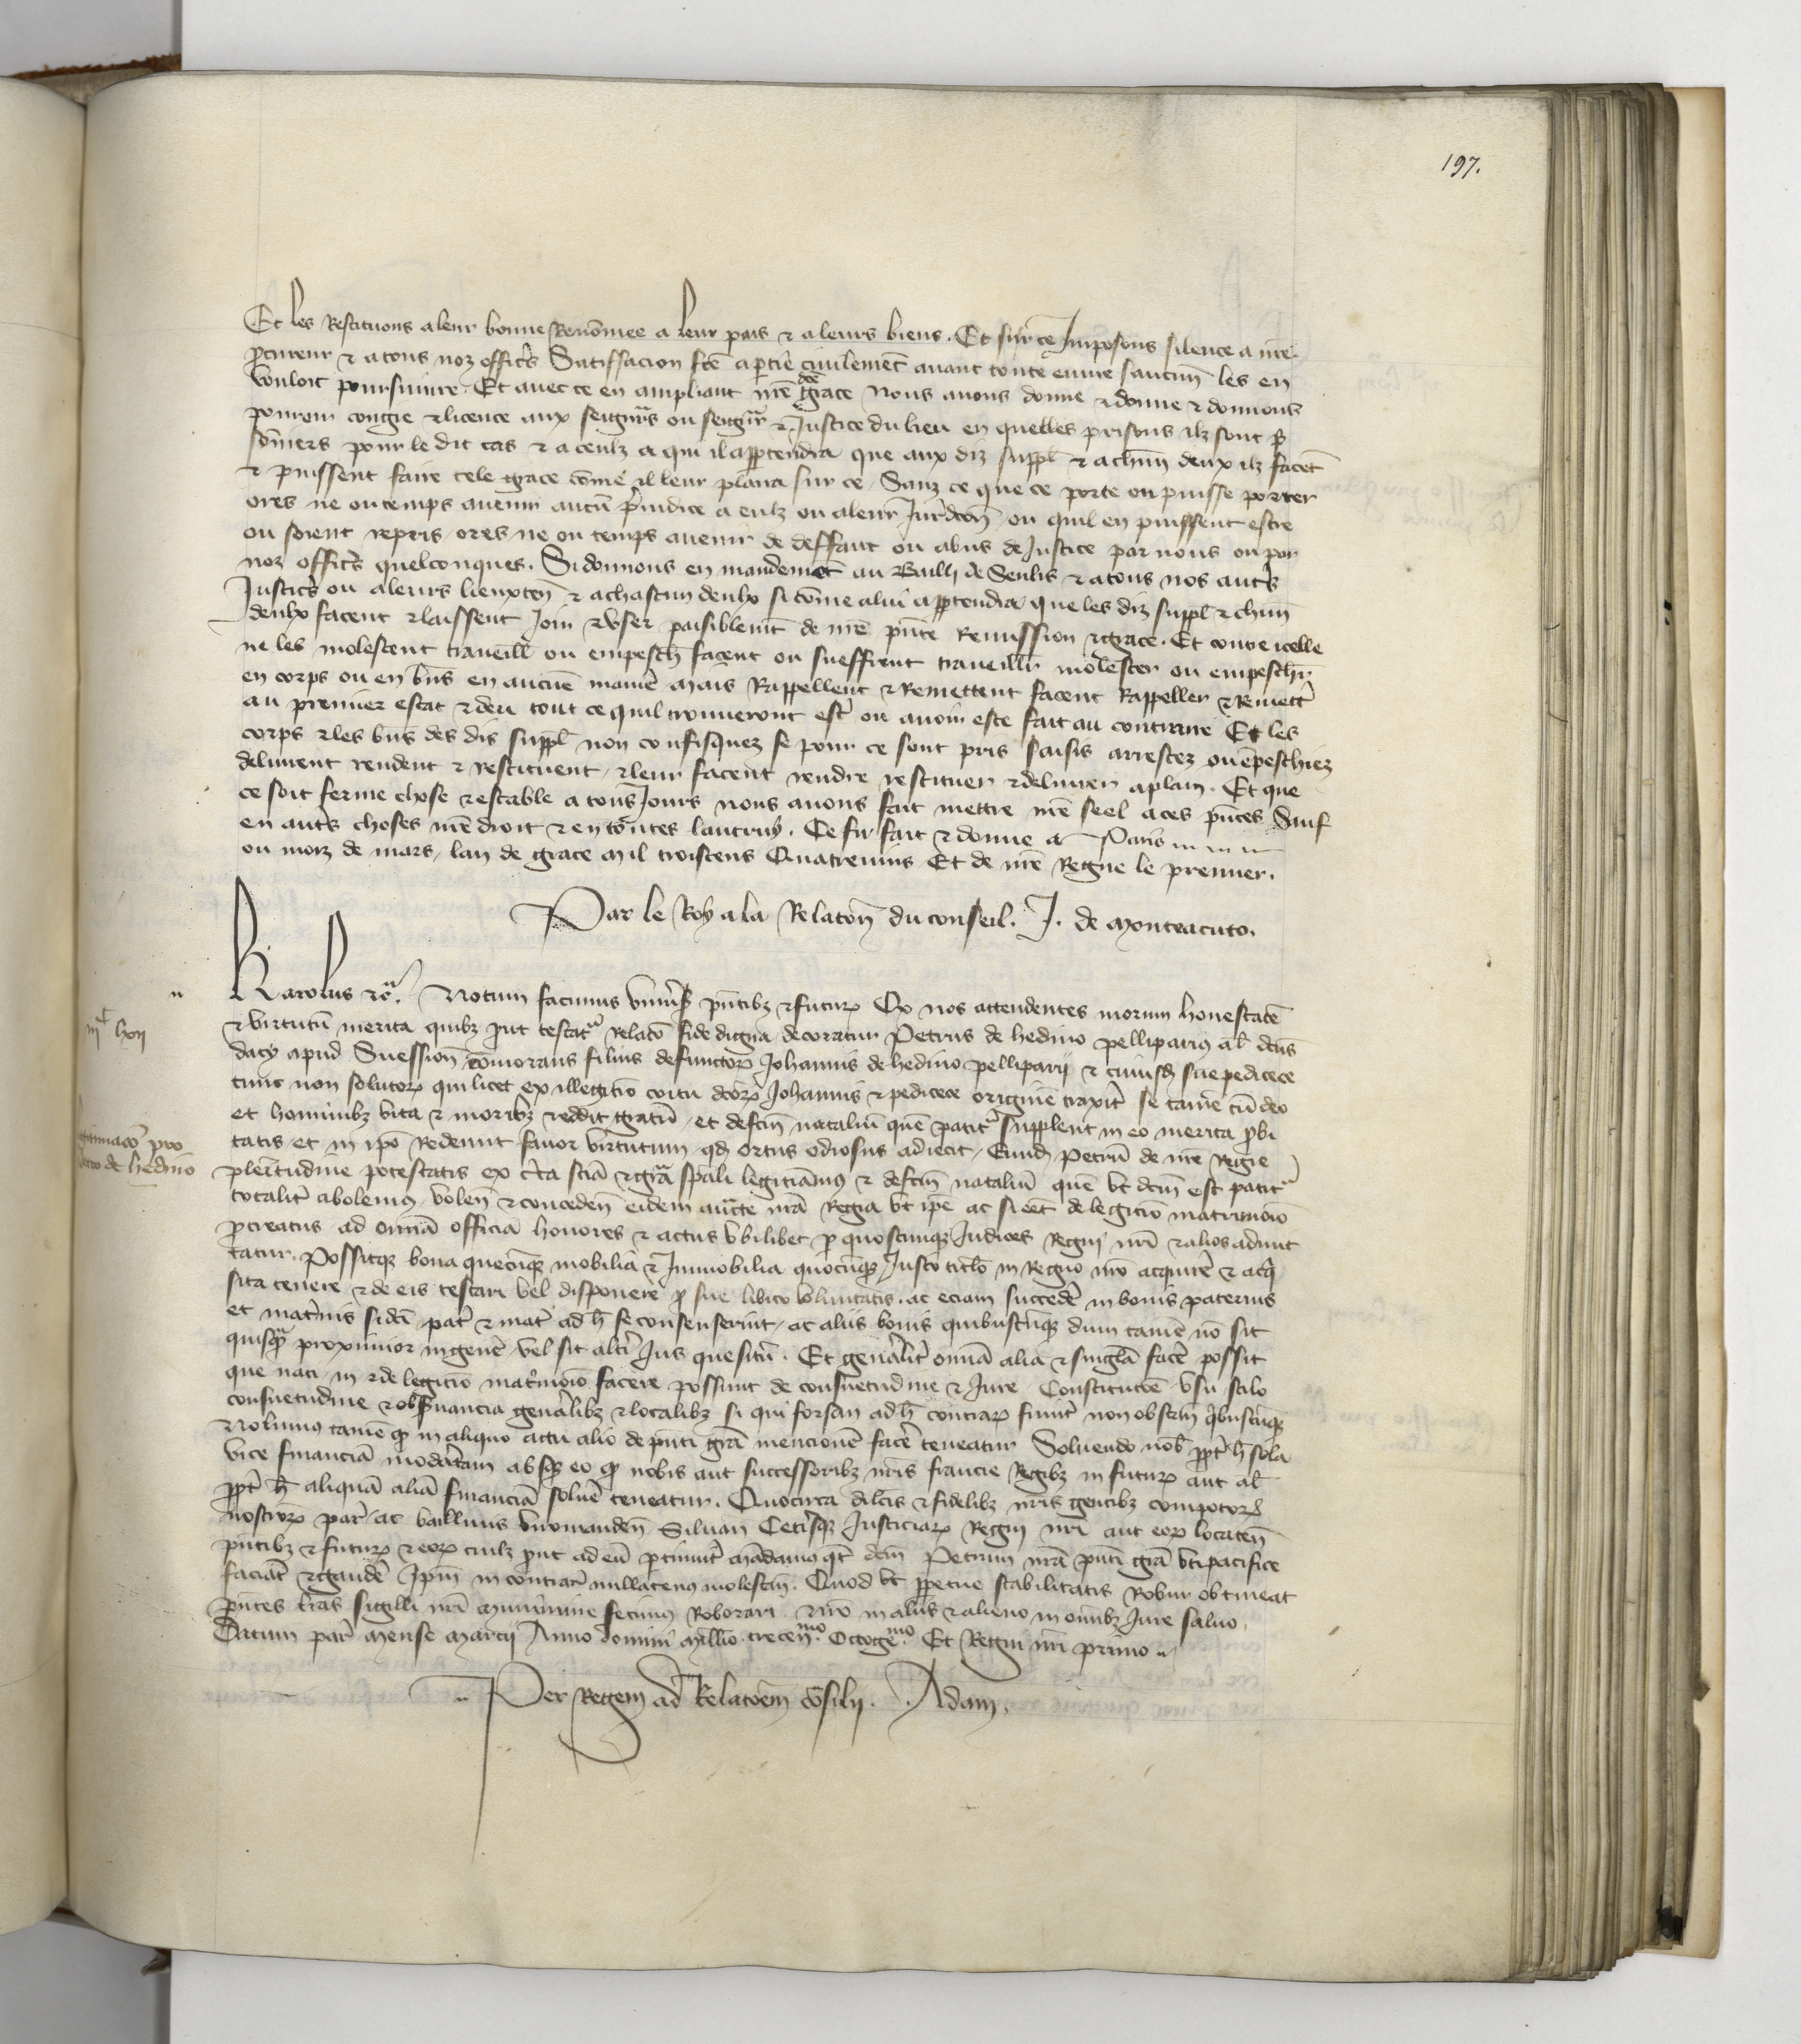 197.
Et les Restituons a leur bonne Renõmee a leur pais & a leurs biens. Et sur ce Imposons silence a nre
ꝓcureur & a tous noz offices Satiffacion fte a ptie ciuilemẽt auant toute euure saucun les en
vouloit poursuiure. Et auec ce en ampliant nre dce grace Nous auons donne & donne & donnons
pouoir congie & licence aux seigneurs ou seigneur & Justice du lieu en quelles prisons ilz sont pri
sõniers pour le dit cas & a ceulz a qui il appartendra que aux diz suppl & a chũn deux ilz facẽt
& puissent faire tele grace cõme il leur plaira sur ce. Sanz ce que ce porte ou puisse porter
ores ne ou temps auenir aucũ preiudice a eulz ou a leur Juridcõn ou quil en puissent estre
ou soient repris ores ne ou temps auenir de deffaut ou abus de Justice par nous ou par
noz offices quelconques. Si donnons en mandemẽt au Bailli de Senlis & a tous nos autrs
Justices ou a leurs lieuxten & a chascun deulx si cõme a lui appartendra que les diz suppl & chũn
deulx facent & laissent Joir & vser paisiblemt de nre pñte Remission & grace. Et contre icelle
ne les molestent traueill ou empesch facent ou sueffrent traueillr molester ou empeschr
en corps ou en bñs en aucũe maniere Mais Rappellent & Remettent facent Rappeller & Remettr
au premier estat & deu tout ce quil trouueront estr ou auoir este fait au contraire Et les
corps & les bñs des dis suppl non confisquez se pour ce sont pris saisis arrestez ou ẽpeschiez
deliurent rendent & restituent & leur facent rendre restituer & deliurer a plain. Et que
ce soit ferme chose & estable a tous Jours nous auons fait mettre nre seel a ces pñtes Sauf
en autrs choses nre droit & en toutes lautruy. Ce fu fait & donne a Paris
ou mois de mars, lan de grace Mil troiscens Quatreuins Et de nre Regne le premier.
Par le Roy a la Relacõn du conseil. J. de Monteacuto.
Karolus &c. Notum facimus vniuersis pñtibz & futuris Qꝫ nos attendentes morum honestatẽ
& virtutũ merita quibz ꝓut testatur relatõ fide digna decoratur Petrus de hedino pellipariꝰ al dcũs
dacy apud Suession cõmorans filius defunctorꝫ Johannis de hedino pelliparii & cuiusdã sue pedicece
tunc non solutorꝫ qui licet ex illegitio coitu dcõrꝫ Johannis & pedicece originẽ traxit se tamẽ tũ deo
et hominibz vita & moribz reddit gratũ, et defcm nataliũ quẽ patitur supplent in eo merita ꝓbi
tatis et in ipo Redemit fauor virtutum qd ortus odiosus adiecit, Eundẽ Petrũ de nre Regie
plenitudine potestatis ex certa sciã & grã spali legitiamꝰ & defcm nataliũ quẽ vt dcm est patitur
totaliter abolemꝰ, volen & conceden eidem auctte nra Regia vt ipe ac si eẽt de legitio matrimoio
ꝓcreatus ad omia officia honores & actus vbilibet per quoscunqꝫ Iudices Regni nri & alios admit
tatur. Possitqꝫ bona quecũqꝫ mobilia & Immobilia quocũqꝫ Justo titlo in Regno nro acquirere & acqui
sita tenere & de eis testari vel disponere ꝓ sue libito voluntatis, ac eciam succeder in bonis paternis
et maternis si dcĩ pater & mater ad h se consenserint, ac aliis bonis quibuscũqꝫ dum tamẽ nõ sit
quisqꝫ proximior in genere vel sit altri Jus quesitũ. Et generaliter omia alia & singla facere possit
que nati in & de legitio matrimoio facere possunt de consuetudine & Jure Constitucõe vsu stilo
consuetudine & obseruancia generalibz & localibz si qui forsan ad h contrarꝫ fuerit non obstan quibuscũqꝫ
Nolumꝰ tamẽ qꝫ in aliquo actu alio de pñti grã mencionẽ facere teneatur Soluendo nob ppter h sola
vice financiã moderatam absqꝫ eo qꝫ nobis aut successoribz nris francie Regibz in futurꝫ aut al
ppter h aliquã aliã financiã soluere teneatur. Quocirca dilctis & fidelibz nris gentibz compotorꝫ
nostrorꝫ paris ac baillius viromanden Siluan Ceterisqꝫ Justiciarꝫ Regni nri aut eorꝫ locaten
pñtibz & futurꝫ & eorꝫ cuilz ꝓut ad eũ pertinuerit mãdamꝰ qtꝫ dcm Petrum nra pñti grã vti pacifice
faciãt & gaudere Ipm in contrariũ nullatenꝰ molestan. Quod vt perpetue stabilitatis Robur obtineat
pñtes lras sigilli nri munimine fecimꝰ Roborari nro in aliis & alieno in omibz Jure saluo.
Datum paris mense Marcii Anno domini Millio. trecen.mo Octoge.mo Et Regni nri primo
Per Regem ad Relacõem cõsilii. Adam.
iiic lxii
gitimacõ pro
Petro de hedino